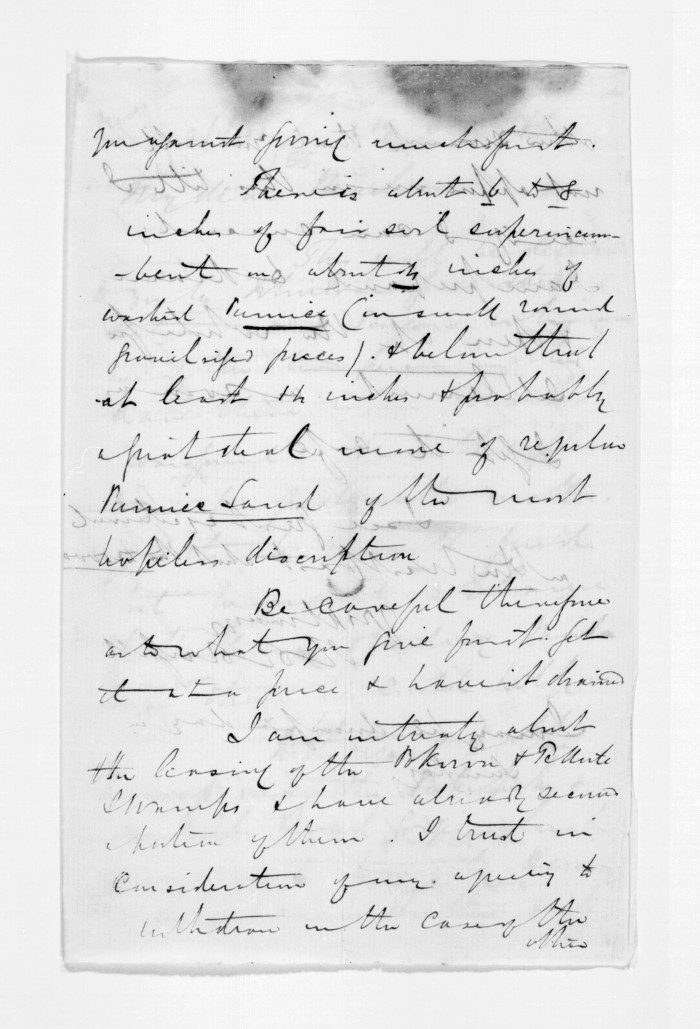 you against giving much for it.
There is about 6 to 8
inches of fair soil superincum-
-bent on about inches of
washed Pumice (in small round
gravel sized pieces). & below that
at least inches & probably
a great deal more of regular
Pumice Sand of the most
hopeless discription
Be careful therefore
as to what you give for it. Get
it at a price & have it drained
I am in treaty about
the leasing of the &
Swamps & have already secured
a portion of them. I trust in
consideration of my agreeing to
withdraw in the case of the
other